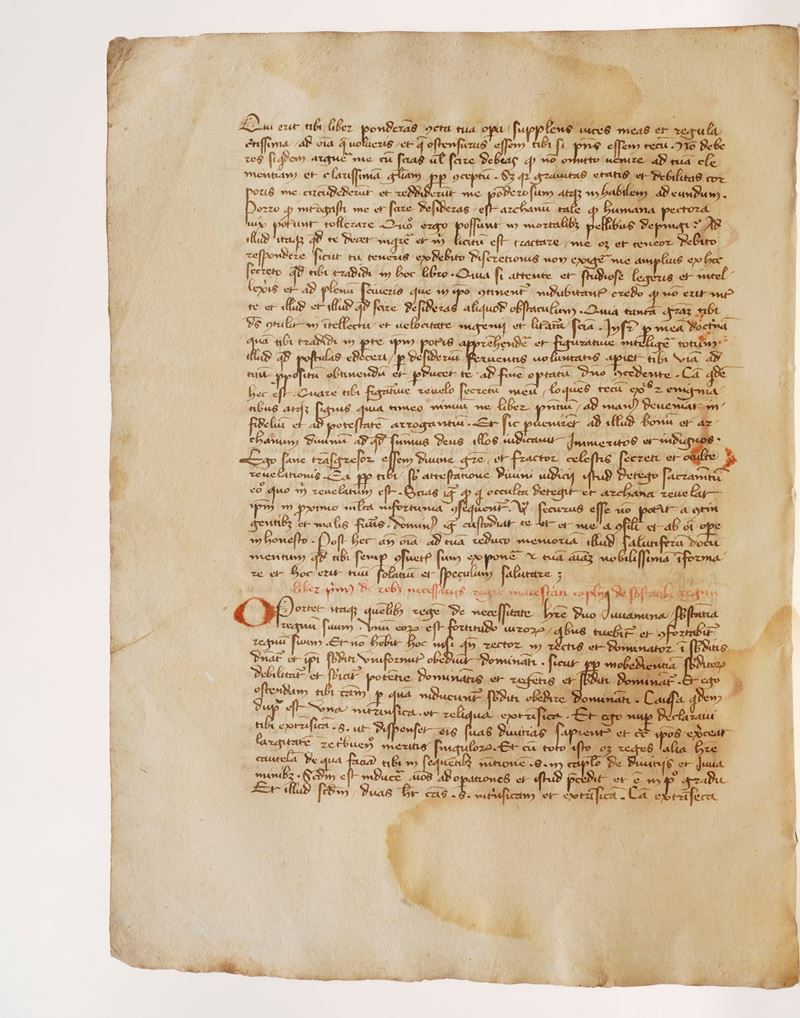 Qui erit tibi liber ponderãs ꝯcta tua opa suppleñs uices meas et regula
certissima ad oīa q̃ uolueris et q̃ ostensurus essem tibi si p̃ns essem tecũ. Nõ debe
res siqdem arguẽ me cũ scias uł scire debeas ꝙ nõ omitto uenire ad tua cle
mentiam et clarissimã gliam ꝓp ꝯceptũ. Sꝫ qꝛ grauitas etatis et debilitas cor
poris me circũdederũt et reddiderũt me põderosum atqꝫ inhabilem ad eundum.
Porro ꝙ int̃ogasti me et scire desideras est archanũ tale ꝙ humana pectora
uix poterũt tollerare. Quõ ergo possunt in mortalibꝫ pellibus depingi? Ad
illud itaqꝫ qd te decet inqrẽ et m̃ licitũ est tractare me oꝫ et teneor debito
respondere sicut tu teneris ex debito discretionis non exigẽ me amplius ex hoc
secreto qd tibi tradidi in hoc libro. Quia si attente et studiose legeris et intel
lexis et ad plenũ sciueris que in ip̃o ꝯtinent̃ indubitant̃ credo ꝙ nõ erit int̃
te et illud et illud qd scire desideras aliquod obstaculum. Quia tantã graz tibi
ds ꝯtulit in ītellectu et uelocitate ingenij et litãta scia. Insr̃ ꝑ meã doctinã
qua tibi tradidi in ꝑte ip̃m potis apprehendẽ et figuratiue intelligẽ totum
illud qd postulas edoceri, ꝑ desideriũ feruentis uoluntatis apiet tibi uiã ad
tuũ ꝓpositũ obtinendũ et ꝑducet te ad finẽ optatũ dño ꝯcedente. Cã qdē
hec est. Quare tibi figatiue reuelo secretũ meũ, loqũes tecũ exis z enigma
tibus atqꝫ signis quia timeo nimiũ ne liber p̃ntiũ ad manꝰ deueniat in
fideliũ et ad potestatẽ arrogantiũ. Et sic pueniret ad illud bonũ et ar
chanum diuinũ ad qd sumus deus illos iudicauit immeritos et indignos.
Ego sane trãsgresor essem diuine grẽ et fractor celestis secreti et oculte
reuelationis. Ea ꝓp tibi sb̃ attestatione diuini iudicij istud detego sacramẽtũ
eõ quo m̃ reuelatum est. Scias iḡ ꝙ q̃ occulta detegit et archana reuelat
ip̃m in ꝓximo mlta infortunia ꝯsequent̃. Vñ securus esse nõ poterit a ꝯtin
gentibꝫ et malis futis. dominꝰ iḡ custodiat te et et me a ꝯsili et ab oi ope
inhonesto. Post hec añ oīa ad tua reduco memoriã illud salutiferũ docu
mentum qd tibi semp ꝯsueui sum exponẽ z tuã aīaz nobilissima īforma
re et hoc erit tuũ solatiũ et speculum salutare ;
liber p̃mꝰ de rebꝫ necessarijs regie maiestati capłm de sb̃stãtibꝫ regnũ
Oportet itaqꝫ quelibꝫ regẽ de necessitate hr̃e duo iuuamina sb̃stãtia
regnũ suum. Vnũ eoꝝ est fortitudo uiroꝝ, qbus tuebit̃ et ꝯfortabit̃
regnũ suum. Et nõ hebit hoc nisi qñ rector in rectis et dominator ī sb̃ditis
dñat̃ et ip̃i sb̃diti uniformit̃ obediũt dominãti. Sicut ꝓp inobedientiã sb̃ditoꝝ
debilitat̃ et sb̃icit̃ potẽtie dominãtis et regẽtis et sb̃diti dominãt̃. Et ego
ostendam tibi cãm ꝑ qua inducunt̃ sb̃diti obedire dominãti. Causa qdem
dup̃ est una intrinsica et reliqua extrisica. Et ego nup̃ declaraui
tibi extrisicã .s. ut dispenset eis suas diuitias sapient̃ et cẽ ip̃os exceat
largitatẽ retbueñs meritis singuloꝝ. Et cũ toto isto oꝫ reges alia hr̃e
cautelã de qua faciã tibi in sequẽtibꝫ mẽtione .s. in capłlo de diuitijs et iuua
minibꝫ. Scd̃m est inducẽ uõs ad opationes et istud p̃cedit et ẽ in p̃o gradu
Et illud scd̃m duas ht̃ cãs .s. int̃nsicam et extrisicã. Cã extrĩseca